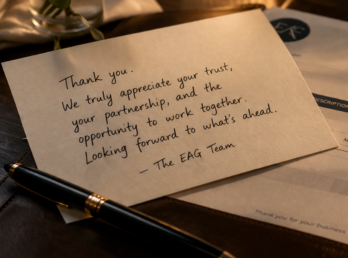 Thank you.
We truly appreciate your trust,
your partnership, and the
opportunity to work together.
Looking forward to what's ahead.
— The EAG Team
SCRIPTION
Thank you for your business